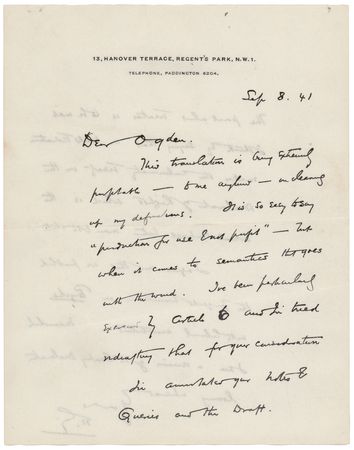 13, HANOVER TERRACE, REGENT'S PARK, N.W.1.
TELEPHONE, PADDINGTON 6204.
Sep 8. 41
Dear Ogden.
This translation is being extremely
profitable — to me anyhow — in clearing
up my definitions. It is so easy to say
"production for use & not profit" — but
when it comes to semantics that goes
with the wind. I've been particularly
of Article 6 and I've tried
redrafting that for your consideration
I've annotated your Notes &
Queries and the Draft.